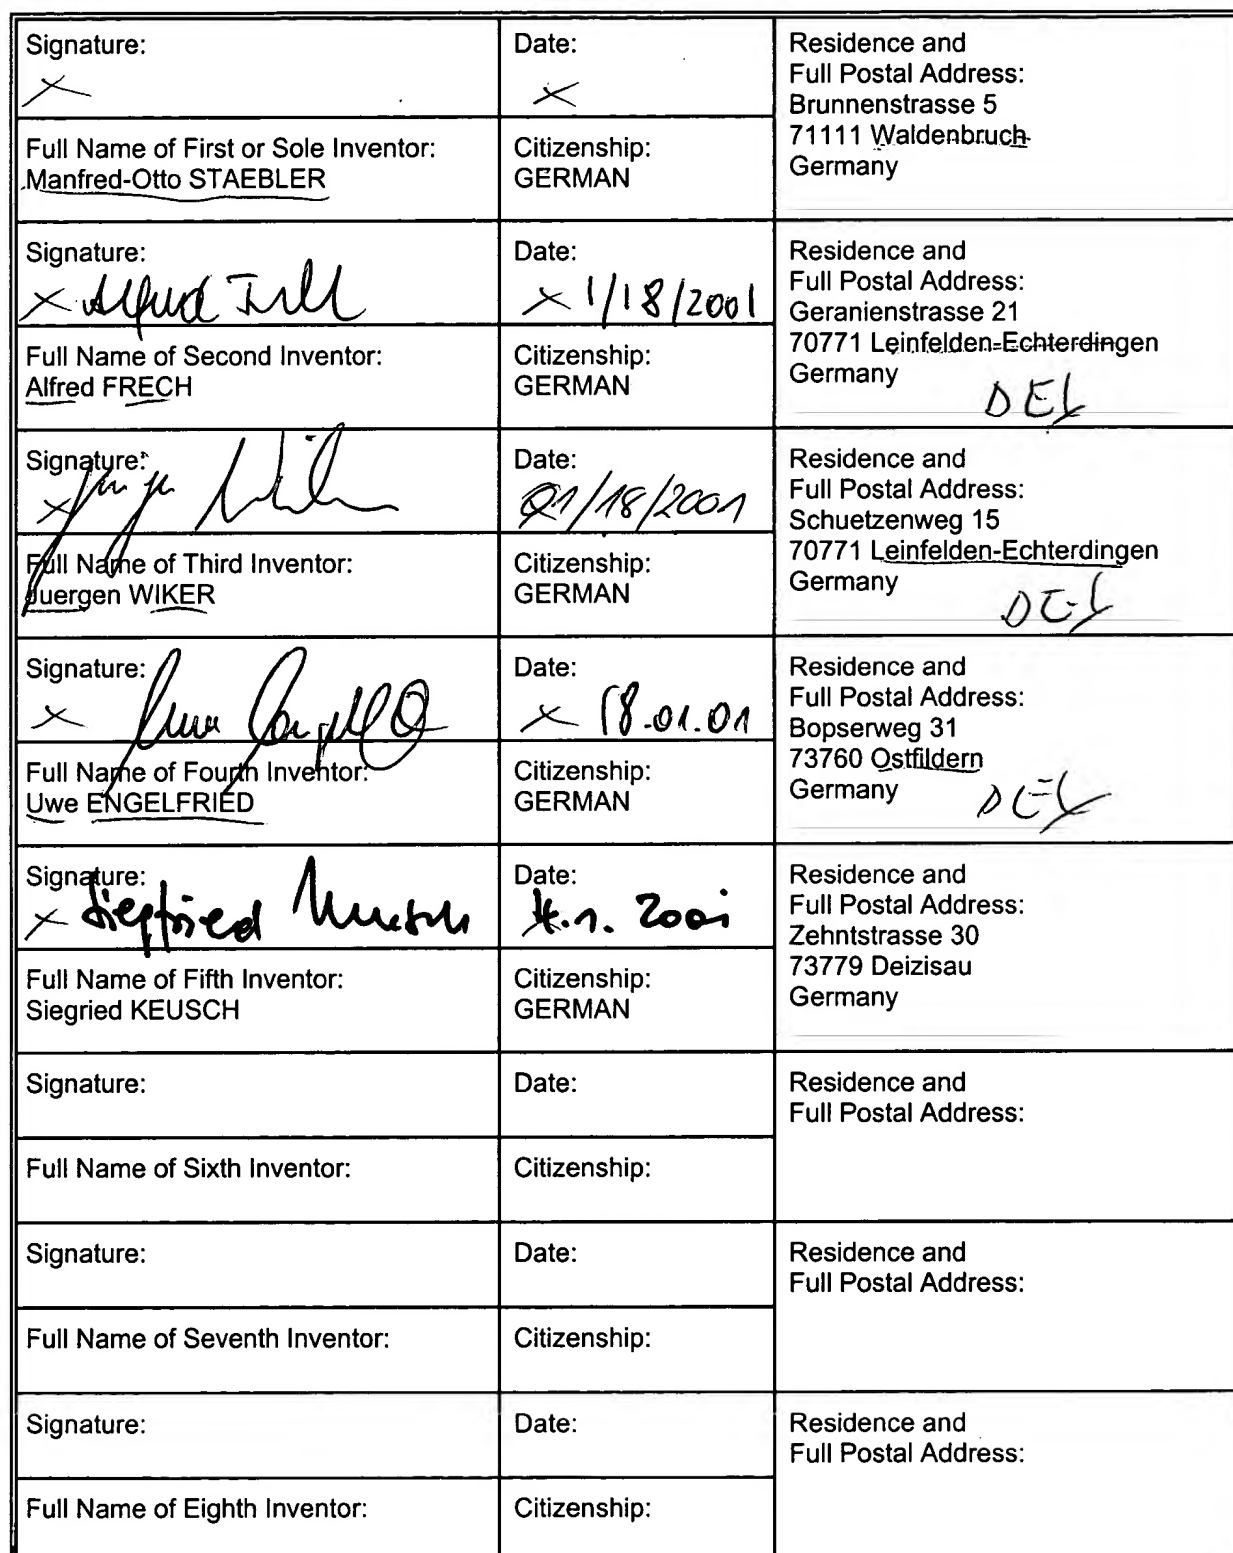 Signature:
Date:
Residence and
Full Postal Address:
Brunnenstrasse 5
71111 Waldenbruch
Germany
×
×
Full Name of First or Sole Inventor:
Manfred-Otto STAEBLER
Citizenship:
GERMAN
Signature:
× Alfred
Date:
× 1/18/2001
Residence and
Full Postal Address:
Geranienstrasse 21
70771 Leinfelden-Echterdingen
Germany
DEX
Full Name of Second Inventor:
Alfred FRECH
Citizenship:
GERMAN
Signature:
×
Date:
01/18/2001
Residence and
Full Postal Address:
Schuetzenweg 15
70771 Leinfelden-Echterdingen
Germany
DEX
Full Name of Third Inventor:
Juergen WIKER
Citizenship:
GERMAN
Signature:
× Uwe
Date:
× 18.01.01
Residence and
Full Postal Address:
Bopserweg 31
73760 Ostfildern
Germany
DEX
Full Name of Fourth Inventor:
Uwe ENGELFRIED
Citizenship:
GERMAN
Signature:
× Siegfried Keusch
Date:
1. 2001
Residence and
Full Postal Address:
Zehntstrasse 30
73779 Deizisau
Germany
Full Name of Fifth Inventor:
Siegried KEUSCH
Citizenship:
GERMAN
Signature:
Date:
Residence and
Full Postal Address:
Full Name of Sixth Inventor:
Citizenship:
Signature:
Date:
Residence and
Full Postal Address:
Full Name of Seventh Inventor:
Citizenship:
Signature:
Date:
Residence and
Full Postal Address:
Full Name of Eighth Inventor:
Citizenship: